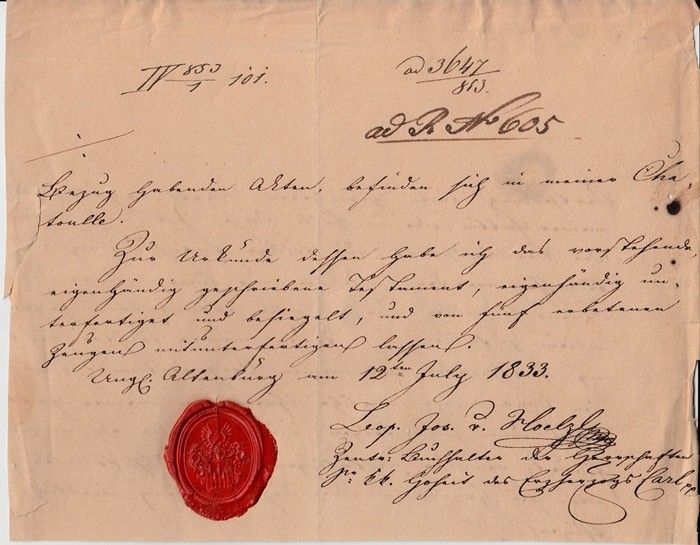 IV 853/1 101.
ad 3647/853.
ad R No 605
Bezug habenden Akten, befinden sich in meiner Cha
toulle.
Zur Urkunde dessen habe ich das vorstehende,
eigenhändig geschriebene Testament, eigenhändig un-
terfertiget und besiegelt, und von fünf erbetenen
Zeugen mitunterfertigen lassen.
Ung. Altenburg am 12ten July 1833.
Leop. Jos. v. Hoelzl
Zentr: Buchhalter der Herrschaften
Sr kk. Hoheit des Erzherzogs Carl pp.